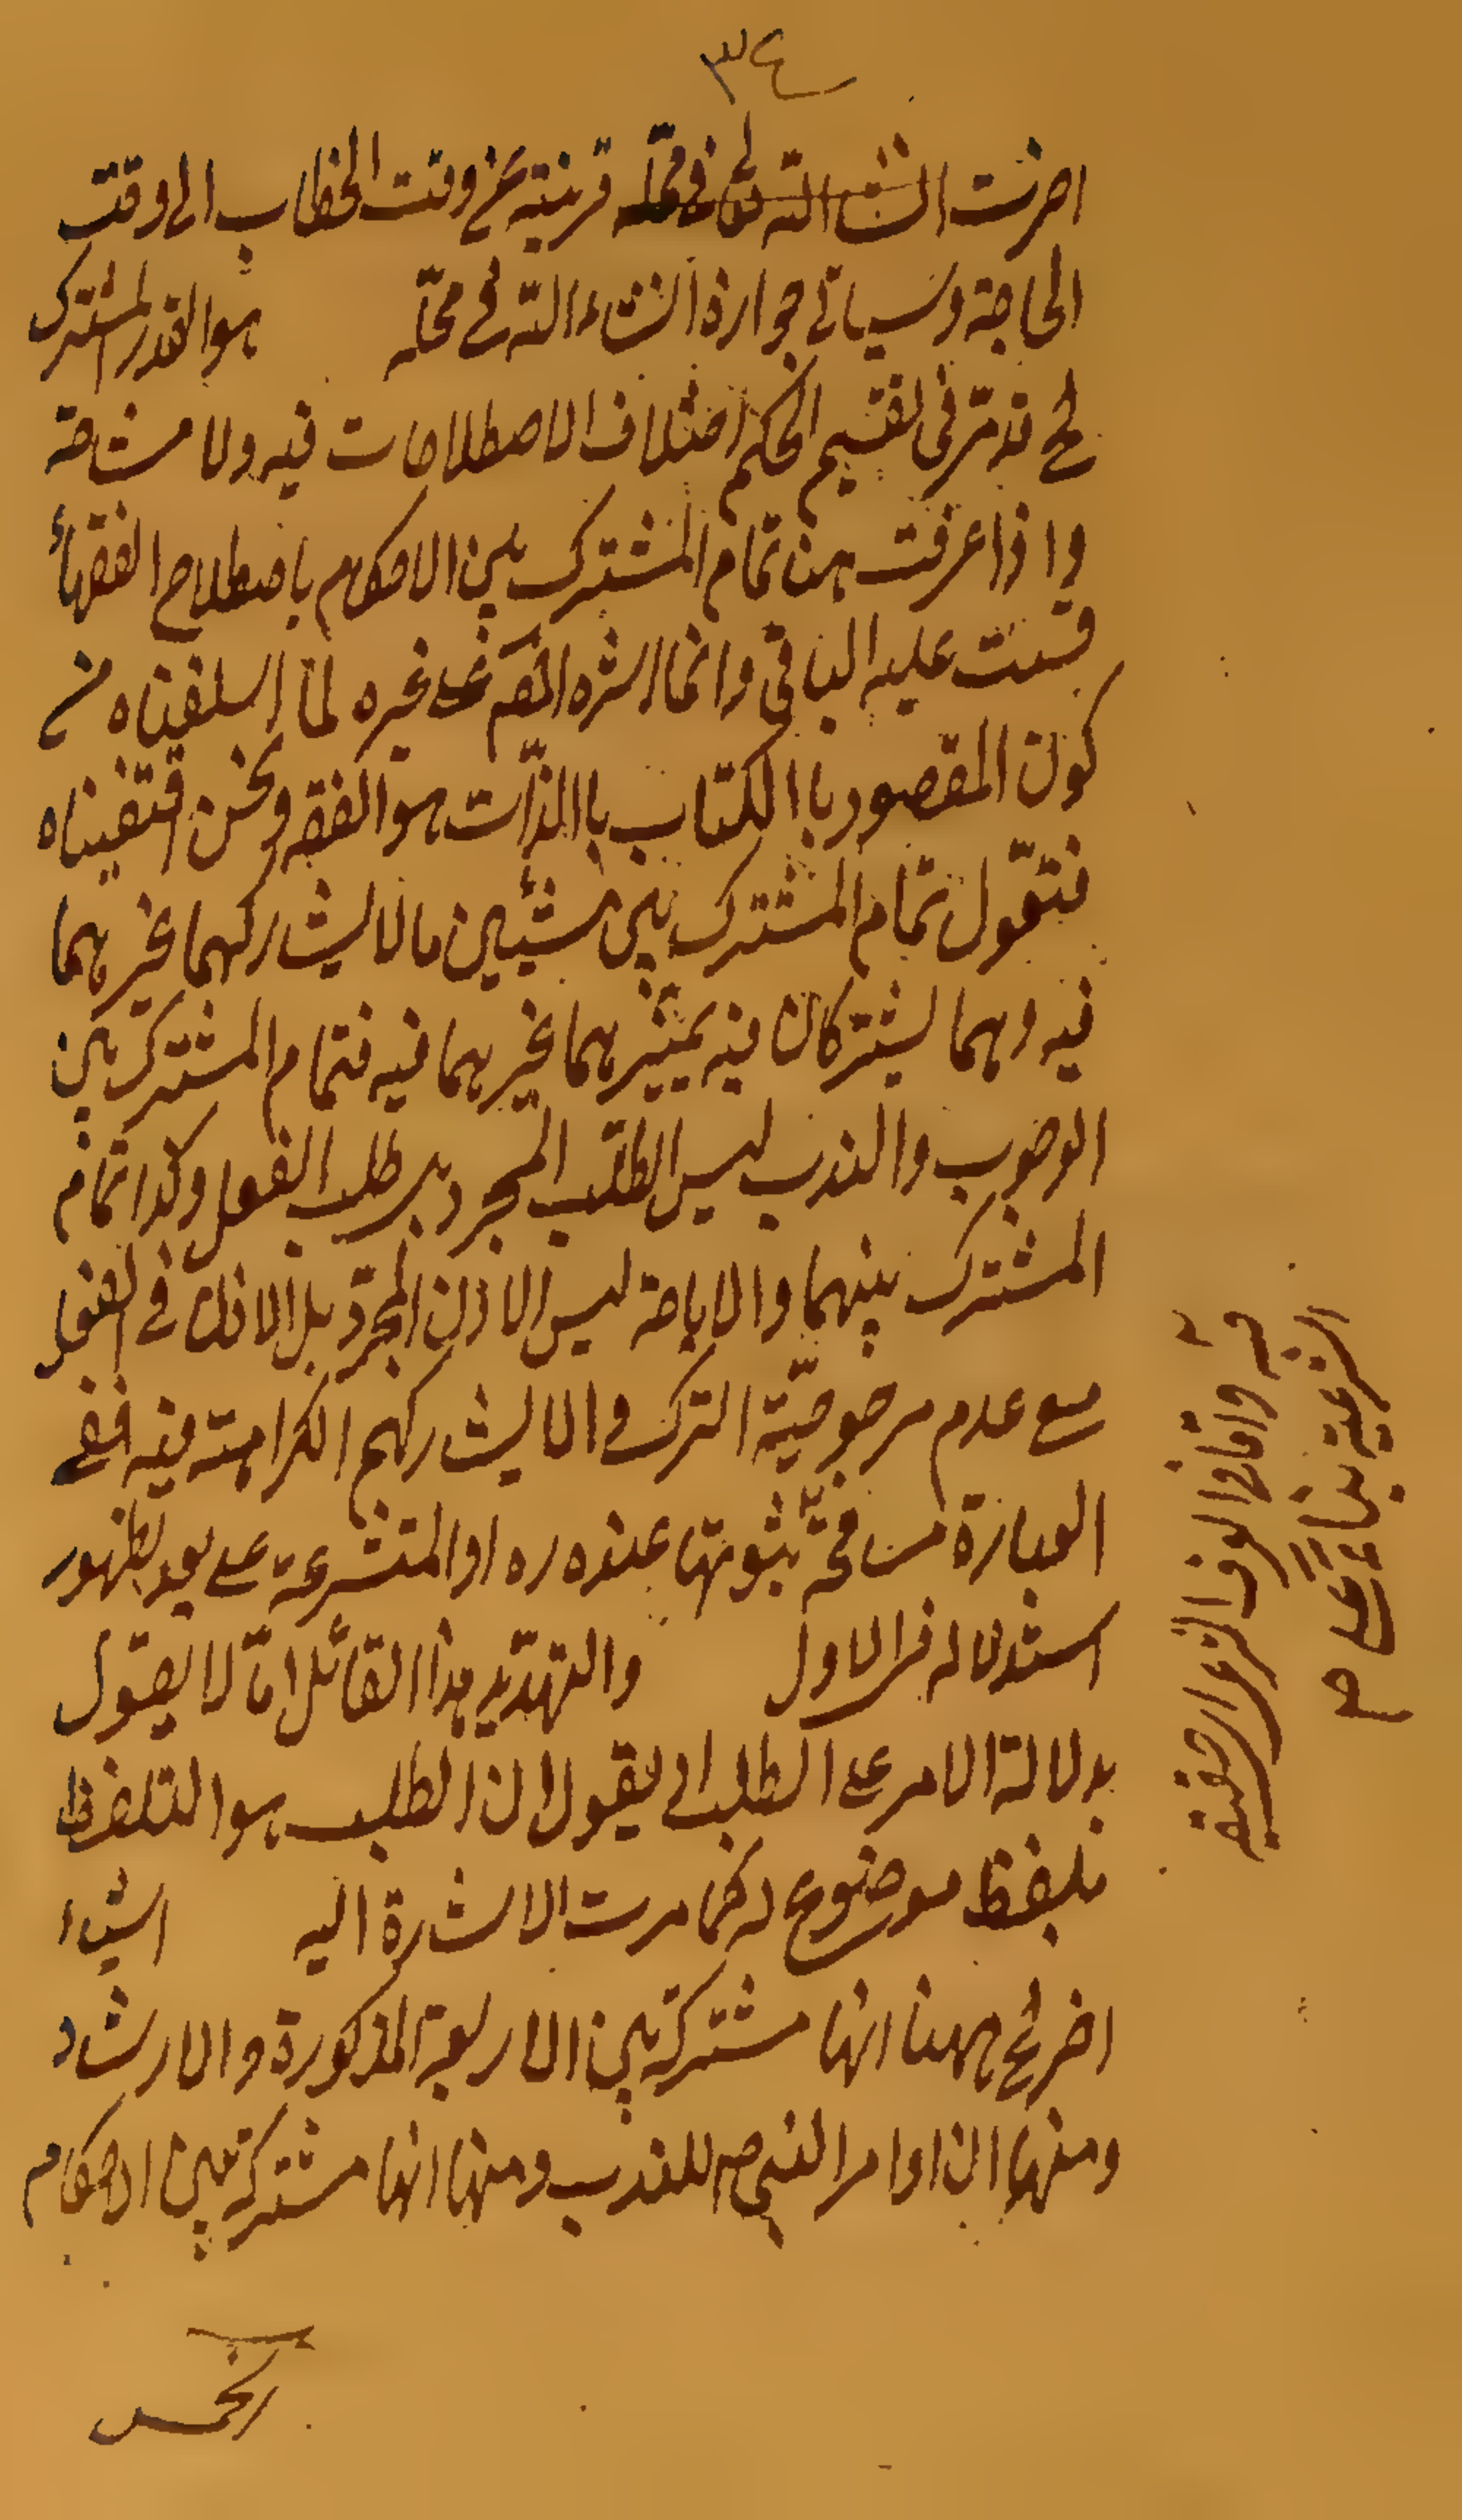 ٣٤
اخرت انشاء الله تعالى في محله قرينة عن وقت الخطاب الى وقت
الحاجة وسياتي جوازه انشاء الله في محله هو القدر المشترك
قد مر في تقسيم الحكم اختلاف الاصطلاحات فيه ولا مشاحة
واذا عرفت هنا تمام المشترك بين الاحكام باصطلاح الفقهاء
قست عليه الباقي وانما اثره المقم على غيره لما اسلفناه من
كون المقصود باالكتاب باالذات هو الفقه ونحن اقتفيناه
فنقول تمام المشترك بين شيئين ما لا يشاركهما غيرهما
فيه وهما يشتركان فيه يميزهما غيرهما فيه فتمام المشترك بين
الوجوب والندب ليس الطلب المجرد بل طلب الفعل وكذا تمام
المشترك بينهما والاباحة ليس الاذن المجرد بل الاذن في الفعل
مع عدم مرجوحية الترك والا يشاركهم الكراهة فيه ففي
العبارة مسامحة ثبوتها عنده ره او المتشرعة على بعد لظهور
استدلاله في الاول والتهديد هذا القائل اما لا يقول
بدلالة الامر على الطلب او يقول ان الطلب هو التلفظ
بلفظ موضوع له كما مرت الاشارة اليه اشياء
اخر هيهنا انها مشتركة بين الاربعة المذكورة والارشاد
ومنها ان اوامر النبي ص للندب ومنها انها مشتركة بين احكام
الخمس